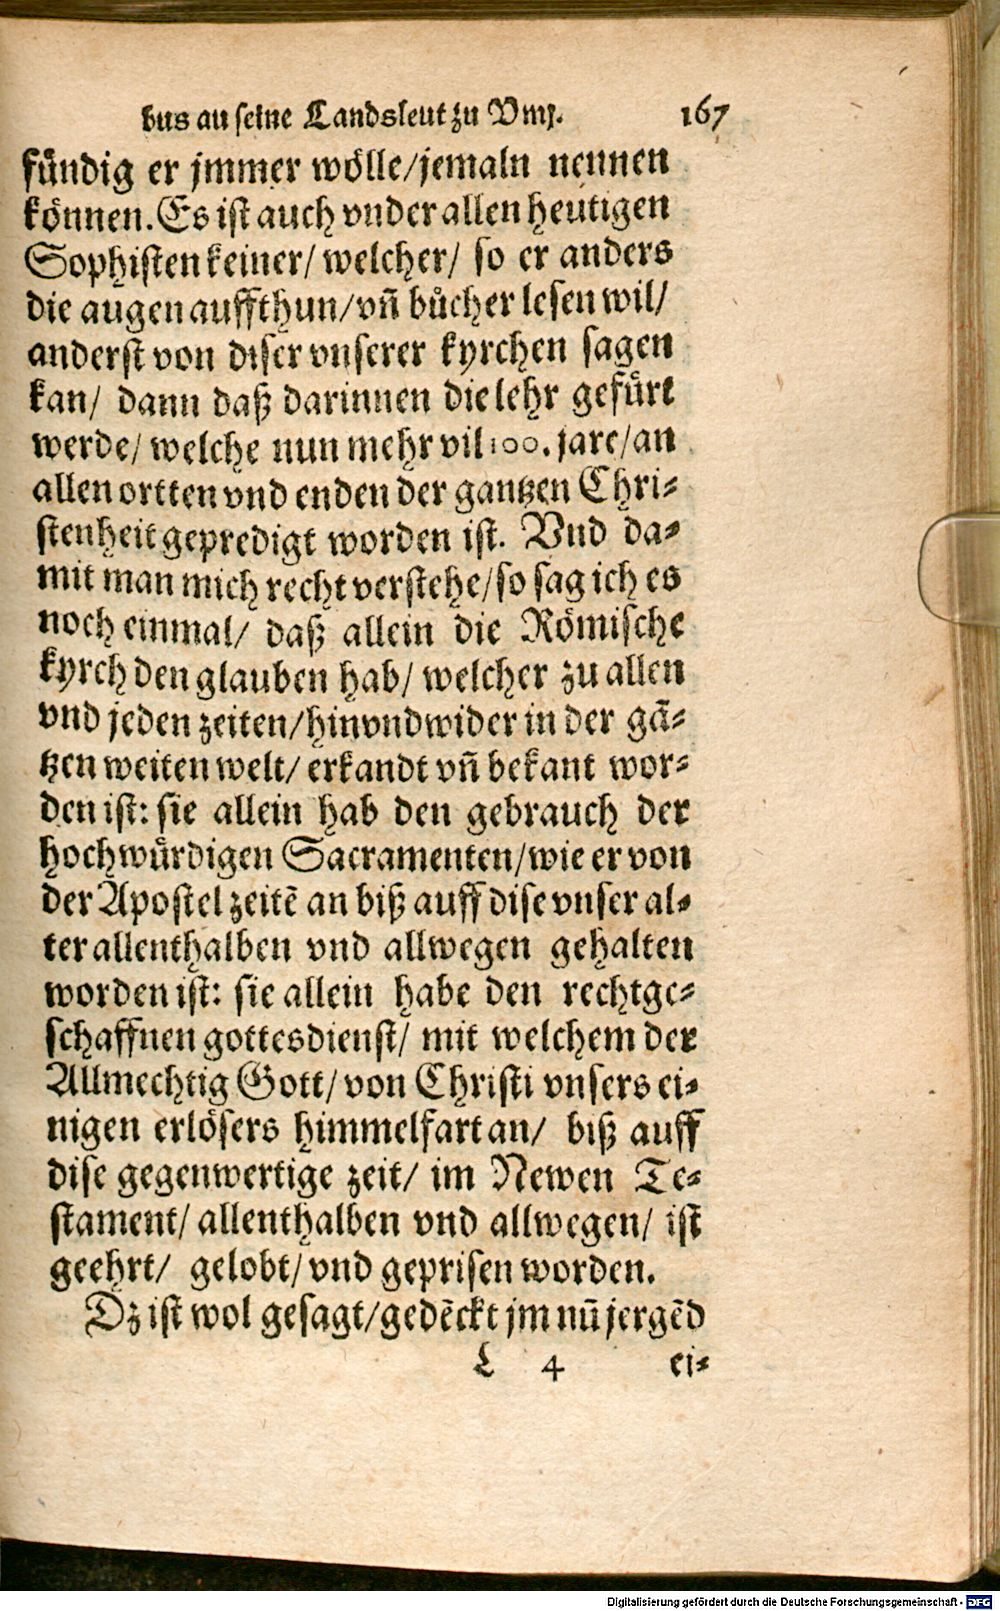 bus an seine Landsleut zu Vmꝛ. 167
fündig er jmmer wölle/jemaln nennen
können. Es ist auch vnder allen heutigen
Sophisten keiner/ welcher/ so er anders
die augen auffthun/vñ bůcher lesen wil/
anderst von diser vnserer kyrchen sagen
kan/ dann daß darinnen die lehr gefürt
werde/ welche nun mehr vil 100. jare/an
allen ortten vnd enden der gantzen Chri-
stenheit gepredigt worden ist. Vnd da-
mit man mich recht verstehe/so sag ich es
noch einmal/ daß allein die Römische
kyrch den glauben hab/ welcher zu allen
vnd jeden zeiten/hin vnd wider in der gā-
tzen weiten welt/ erkandt vñ bekant wor-
den ist: sie allein hab den gebrauch der
hochwürdigen Sacramenten/wie er von
der Apostel zeitē an biß auff dise vnser al-
ter allenthalben vnd allwegen gehalten
worden ist: sie allein habe den rechtge-
schaffnen gottesdienst/ mit welchem der
Allmechtig Gott/von Christi vnsers ei-
nigen erlösers himmelfart an/ biß auff
dise gegenwertige zeit/ im Newen Te-
stament/ allenthalben vnd allwegen/ ist
geehrt/ gelobt/vnd geprisen worden.
Dz ist wol gesagt/gedēckt jm nū jergēd
L 4 ei-
Digitalisierung gefördert durch die Deutsche Forschungsgemeinschaft - DFG